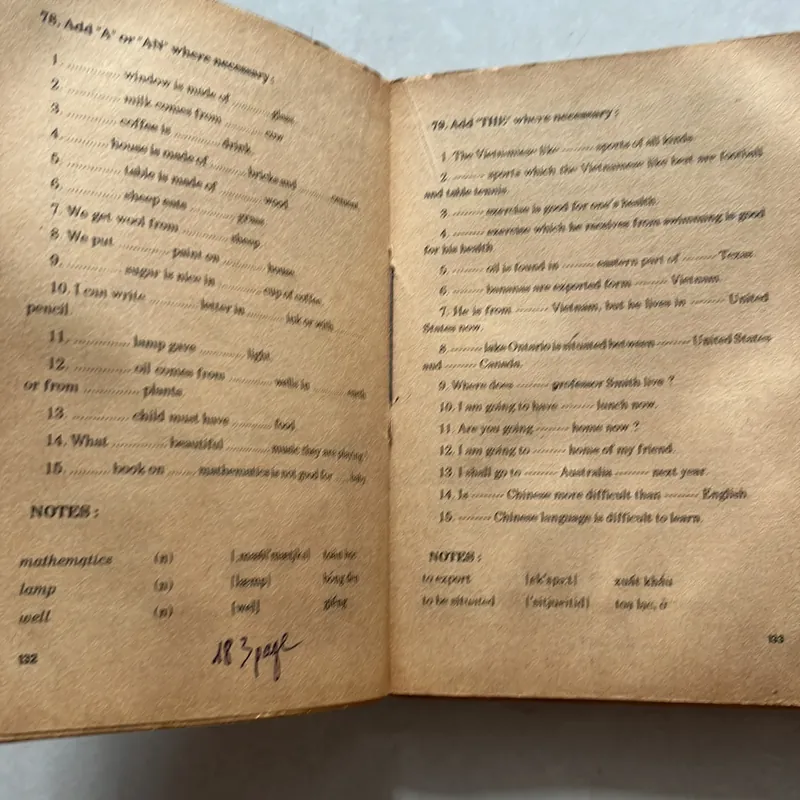 78. Add "A" or "AN" where necessary :
1. ............ window is made of ......... glass.
2. ............ milk comes from ......... cow
3. ............ coffee is ............ drink.
4. ............ house is made of ......... bricks and ......... cement.
5. ............ table is made of ......... wood.
6. ............ sheep eats ............ grass.
7. We get wool from ............ sheep.
8. We put ............ paint on ............ house.
9. ............ sugar is nice in ......... cup of coffee.
10. I can write ............ letter in ......... ink or with ......
pencil.
11. ............ lamp gave ............ light.
12. ............ oil comes from ......... wells in ......... earth
or from ............ plants.
13. ............ child must have ......... food.
14. What ............ beautiful ......... music they are playing!
15. ......... book on ...... mathematics is not good for ...... baby
NOTES :
mathematics (n)
lamp (n) [læmp]
well (n) [wel] giếng
132
183 page
79. Add "THE" where necessary :
1. The Vietnamese like ......... sports of all kinds.
2. ......... sports which the Vietnamese like best are football,
and table tennis.
3. ......... exercise is good for one's health.
4. ......... exercise which he receives from swimming is good
for his health
5. ......... oil is found in ......... eastern part of ......... Texas.
6. ......... bananas are exported form ......... Vietnam.
7. He is from ......... Vietnam, but he lives in ......... United
States now.
8. ......... lake Ontario is situated between ......... United States
and ......... Canada.
9. Where does ......... professor Smith live ?
10. I am going to have ......... lunch now.
11. Are you going ......... home now ?
12. I am going to ......... home of my friend.
13. I shall go to ......... Australia ......... next year.
14. Is ......... Chinese more difficult than ......... English.
15. ......... Chinese language is difficult to learn.
NOTES :
to export xuất khẩu
to be situated tọa lạc, ở
133